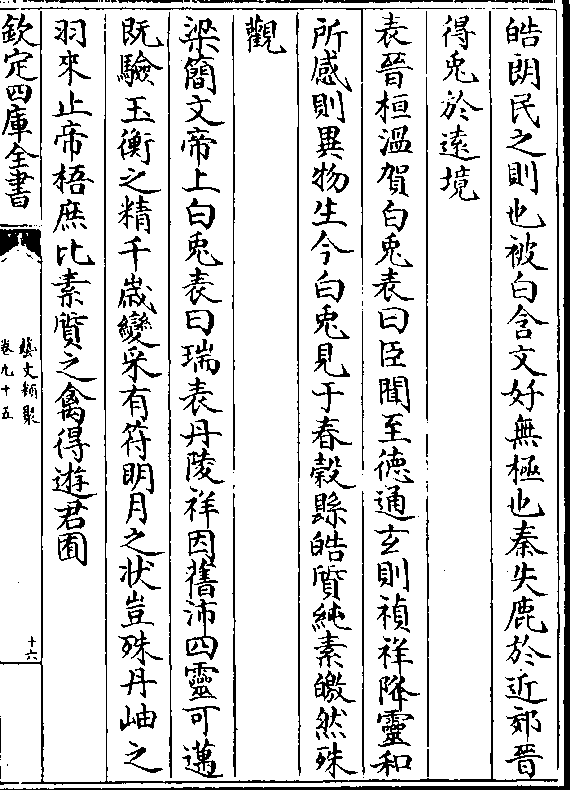 皓朗民之則也被白含文好無極也秦失鹿於近郊晉
得兎於遠境
表晉桓溫賀白兎表曰臣聞至徳通玄則禎祥降靈和
所感則異物生今白兎見于春穀縣皓質純素皦然殊
觀
梁簡文帝上白兎表曰瑞表丹陵祥因舊沛四靈可邁
既驗玉衡之精千歲變采有符明月之狀豈殊丹岫之
羽來止帝梧庶比素質之禽得遊君囿
欽定四庫全書
藝文類聚
卷九十五
十六